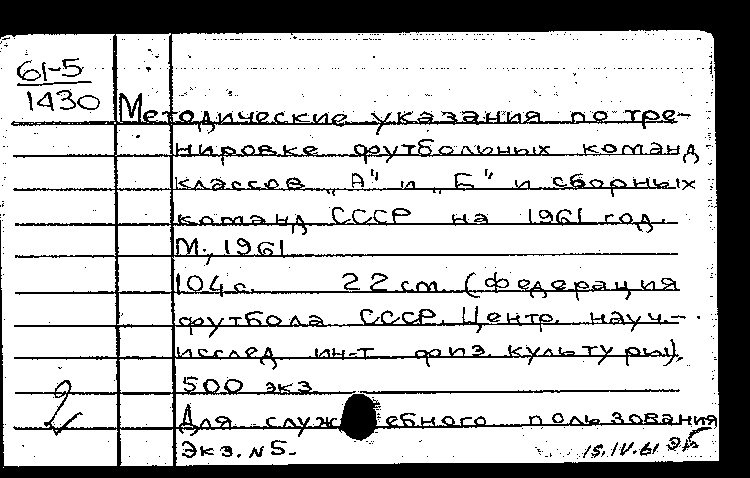 61-5
1430
Методические указания по тре-
нировке футбольных команд
классов „А" и „Б" и сборных
команд СССР на 1961 год.
М., 1961
104 с. 22 см. (Федерация
футбола СССР. Центр. науч.-
исслед ин-т физ. культуры).
500 экз
Для служебного пользования
Экз. №5.
15.IV.61
2